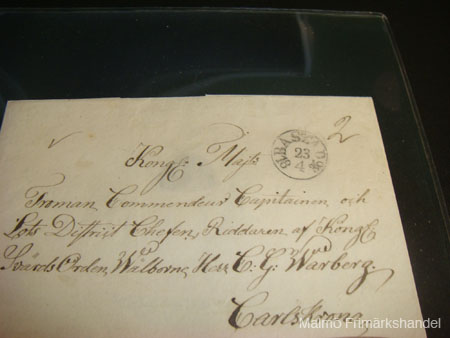 2
23
4
Kongl: Majts
Troman Commendeur Capitainen och
Lots District Chefen, Riddaren af Kongl
Svärds Orden, Wälborne Herr C. G. Warberg.
Carlskrona
Malmö Frimärkshandel